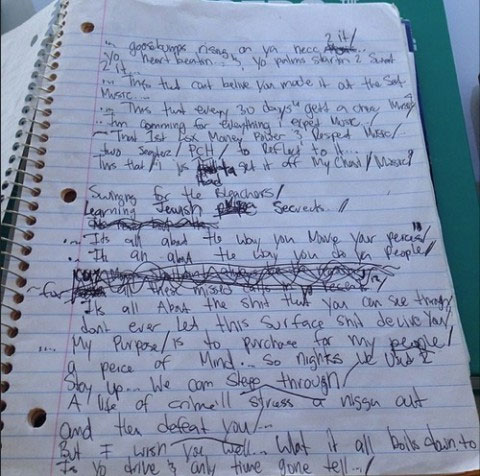 ... goosebumps rising on ya necc
2 it/
Yo heart beatin & yo palms startin 2 sweat
2 it...
... This that cant belive you made it out the Set
Music...
... This that every 30 days u getta a check Music/
...Im comming for everything I expect Music...
~ That 1st Money Power & Respect Music/
two Seaters/ PCH/ to Reflect to it...
This that/ I Had to get it off My Chest/ Music/
Swinging for the Bleachers/
Learning Jewish Secrects //
... Its all about the way you Move your peices/"
... Its all about the way you do yo people/
~ for all these missed
Its all About the shit that you can see through/
dont ever Let this Surface shit decive You/
.... My Purpose/ is to purchase for my people/
a peice of Mind... So nights we Used 2
Stay up... We can Step through/
A life of crime'll stress a nigga out
and then defeat you/...
But I wish you well... What it all boils down to
Is yo drive & only time gone tell.../